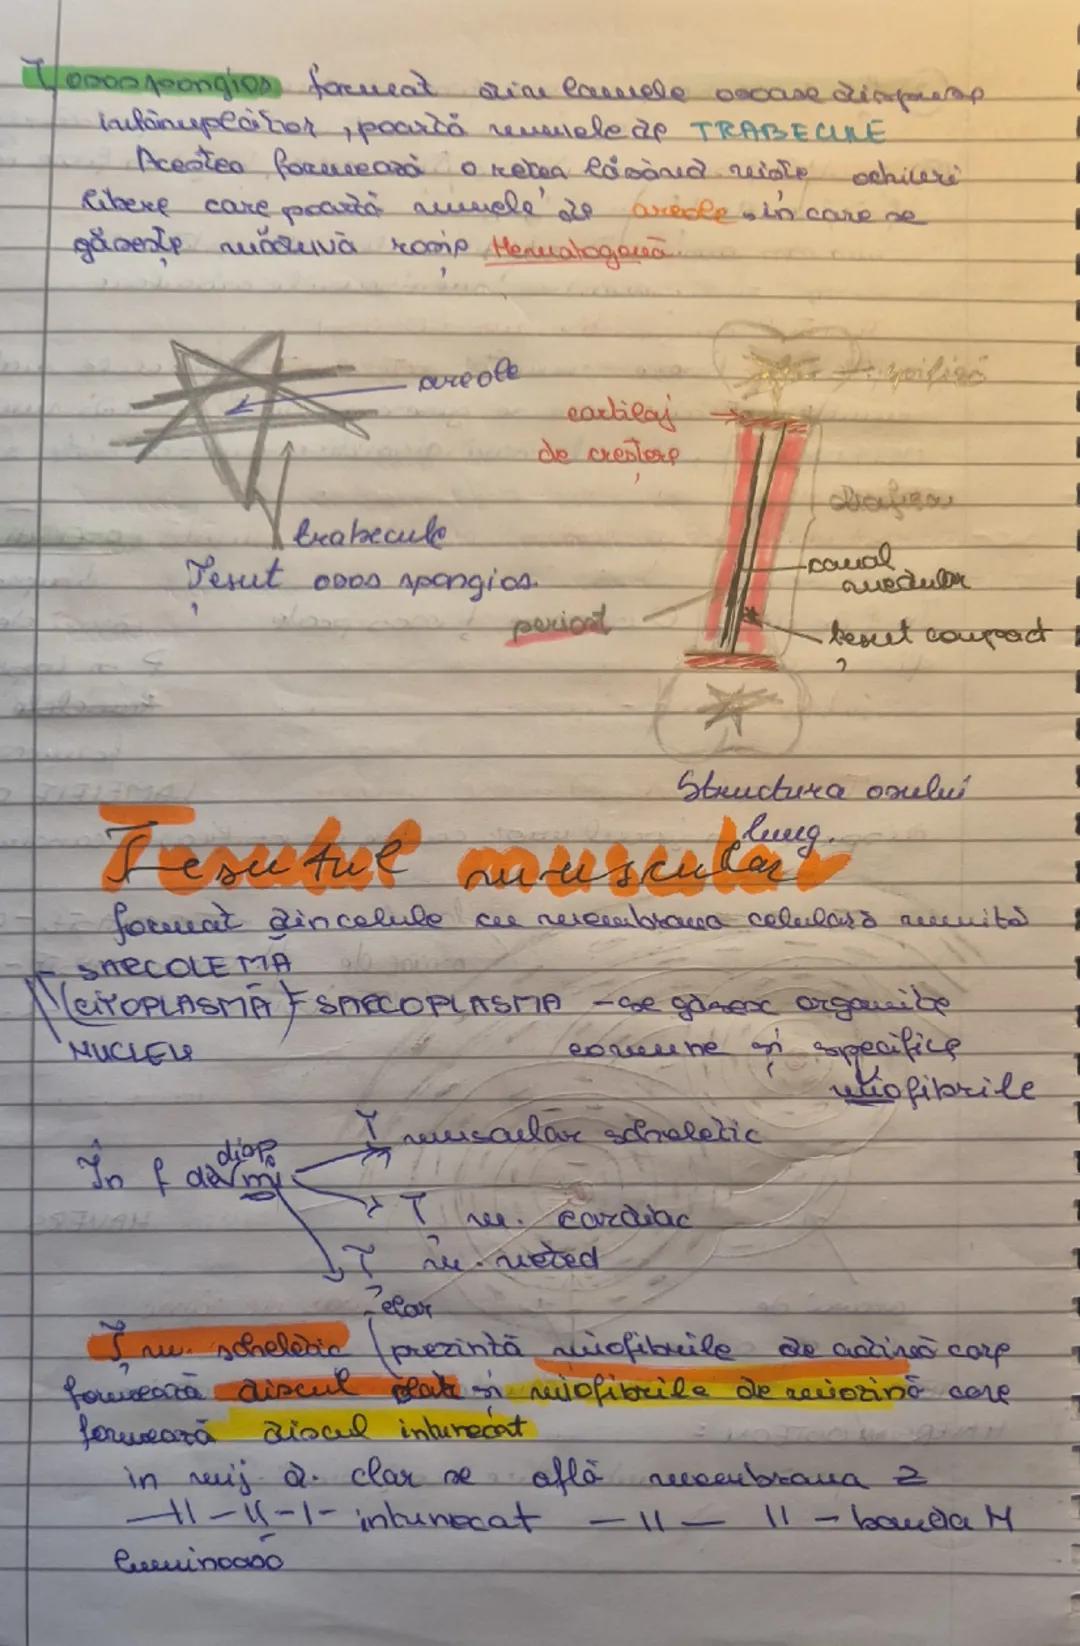 Ț osos spongios format din lamele osoase dispuse
întâmplător, poartă numele de TRABECULE
Acestea formează o rețea lăsând niște ochiuri
libere care poartă numele de areole, în care se
găsește măduvă roșie Hematogenă
areole
epifiză
cartilaj
de creștere
diafiza
trabecule
Țesut osos spongios.
canal
medular
periost
țesut compact
Structura osului
lung.
Țesutul muscular
format din celule cu membrana celulară numită
SARCOLEMĂ
(CITOPLASMĂ) SARCOPLASMA - se găsesc organite
NUCLEU
comune și specifice
miofibrile
Ț muscular scheletic
disp.
În f de mi
Ț m. cardiac
Ț m. neted
clar
Ț m. scheletic (prezintă miofibrile de actină care
formează discul clar și miofibrile de miozină care
formează discul întunecat
in mij d. clar se află membrana Z
—11—11—1- intunecat —11— 11 - banda H
luminoasă